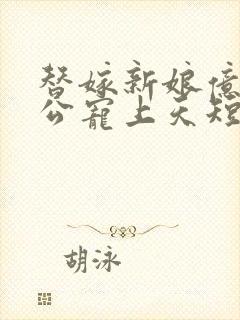 替嫁新娘億
公寵上天短
胡泳